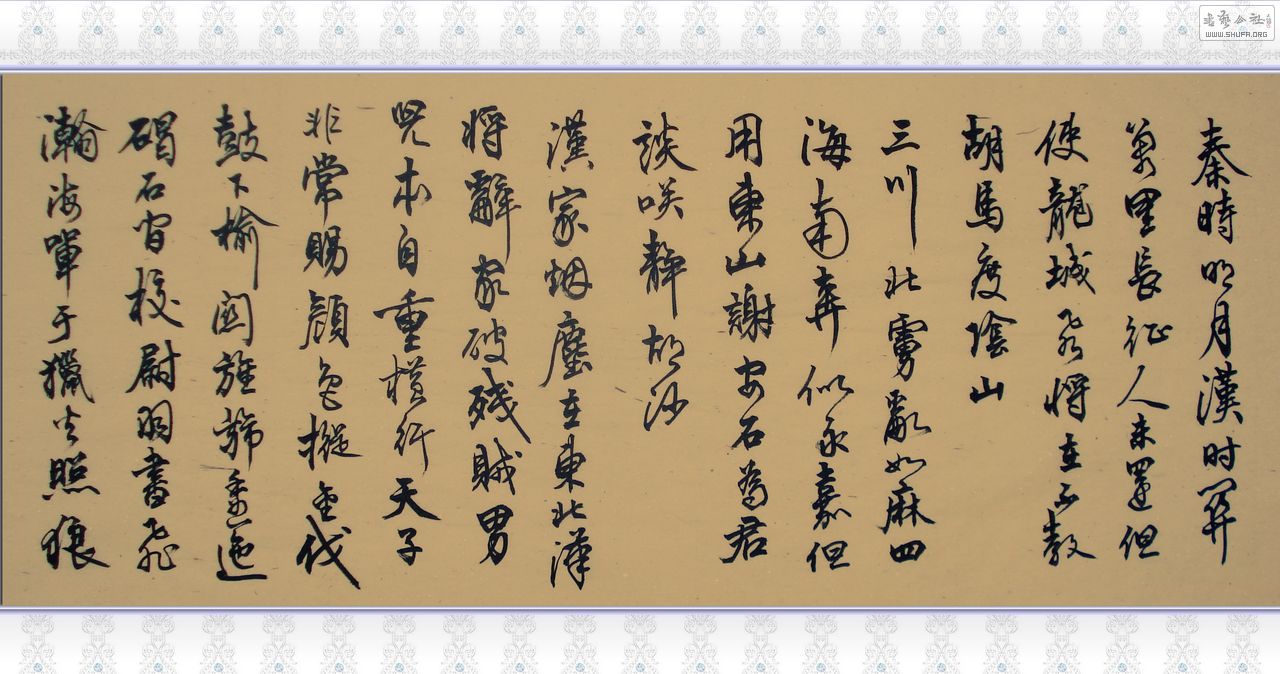 秦時明月漢时関
萬里長征人未還但
使龍城飞将在不教
胡馬度陰山
三川北虜亂如麻四
海南奔似永嘉但
用東山謝安石為君
談咲静胡沙
漢家烟塵在東北漢
将辭家破残賊男
兒本自重横行天子
非常賜顔色摐金伐
鼓下榆関旌旆逶迤
碣石间校尉羽書飛
瀚海單于獵火照狼
书藝公社
WWW.SHUFA.ORG